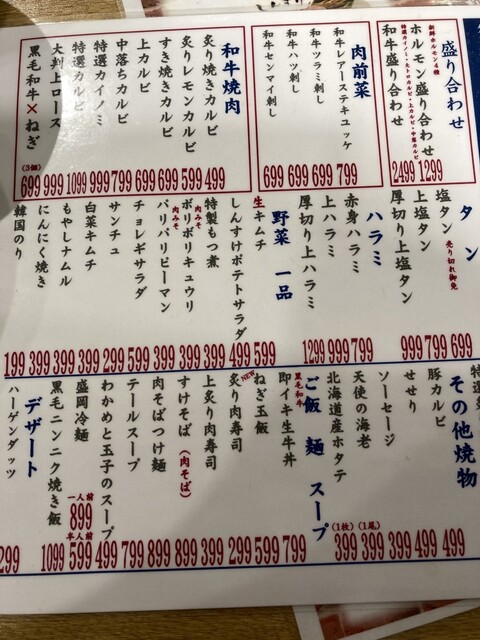 盛り合わせ
新鮮ホルモン4種
ホルモン盛り合わせ 1299
特選カイノミ・大トロカルビ・上カルビ・中落カルビ
和牛盛り合わせ 2499
肉前菜
和牛レアーステキュッケ 799
和牛ツラミ刺し 699
和牛ハツ刺し 699
和牛センマイ刺し 699
和牛焼肉
炙り焼きカルビ 499
炙りレモンカルビ 599
すき焼きカルビ 699
上カルビ 699
中落ちカルビ 799
特選カイノミ 999
特選カルビ 1099
大判上ロース 999
黒毛和牛×ねぎ (3個) 699
タン
塩タン 売り切れ御免 699
上塩タン 799
厚切り上塩タン 999
ハラミ
赤身ハラミ 799
上ハラミ 999
厚切り上ハラミ 1299
野菜 一品
生キムチ 599
しんすけポテトサラダ 499
特製もつ煮 399
肉みそ
ボリボリキュウリ 399
肉みそ
パリパリピーマン 399
チョレギサラダ 399
サンチュ 299
白菜キムチ 399
もやしナムル 399
にんにく焼き 399
韓国のり 199
その他焼物
豚カルビ 499
せせり 499
ソーセージ 399
天使の海老 (1尾) 399
北海道産ホタテ (1枚) 399
ご飯 麺 スープ
黒毛和牛
即イキ生牛丼 799
ねぎ玉飯 599
NEW
炙り肉寿司 299
上炙り肉寿司 399
すけそば (肉そば) 899
肉そばつけ麺 899
テールスープ 799
わかめと玉子のスープ 499
盛岡冷麺 一人前 899 半人前 599
黒毛ニンニク焼き飯 1099
デザート
ハーゲンダッツ 299